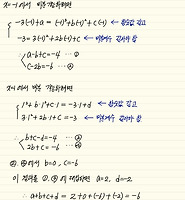 x=-1 에서 미분 가능하려면
-3·(-1)+a = (-1)³+b(-1)²+c(-1) ← 함숫값 같고
-3 = 3(-1)²+2b(-1)+c ← 미분계수 같아야 함
∴ a-b+c=-4 … ①
c-2b=-6 … ②
x=1 에서 미분 가능하려면
1³+b·1²+c·1 = -3·1+d ← 함숫값 같고
3·1²+2b·1+c = -3 ← 미분계수 같아야 함
∴ b+c-d=-4 … ③
2b+c=-6 … ④
②, ④에서 b=0, c=-6
이 결과를 ①, ③에 대입하면 a=2, d=-2
∴ a+b+c+d = 2+0+(-6)+(-2) = -6